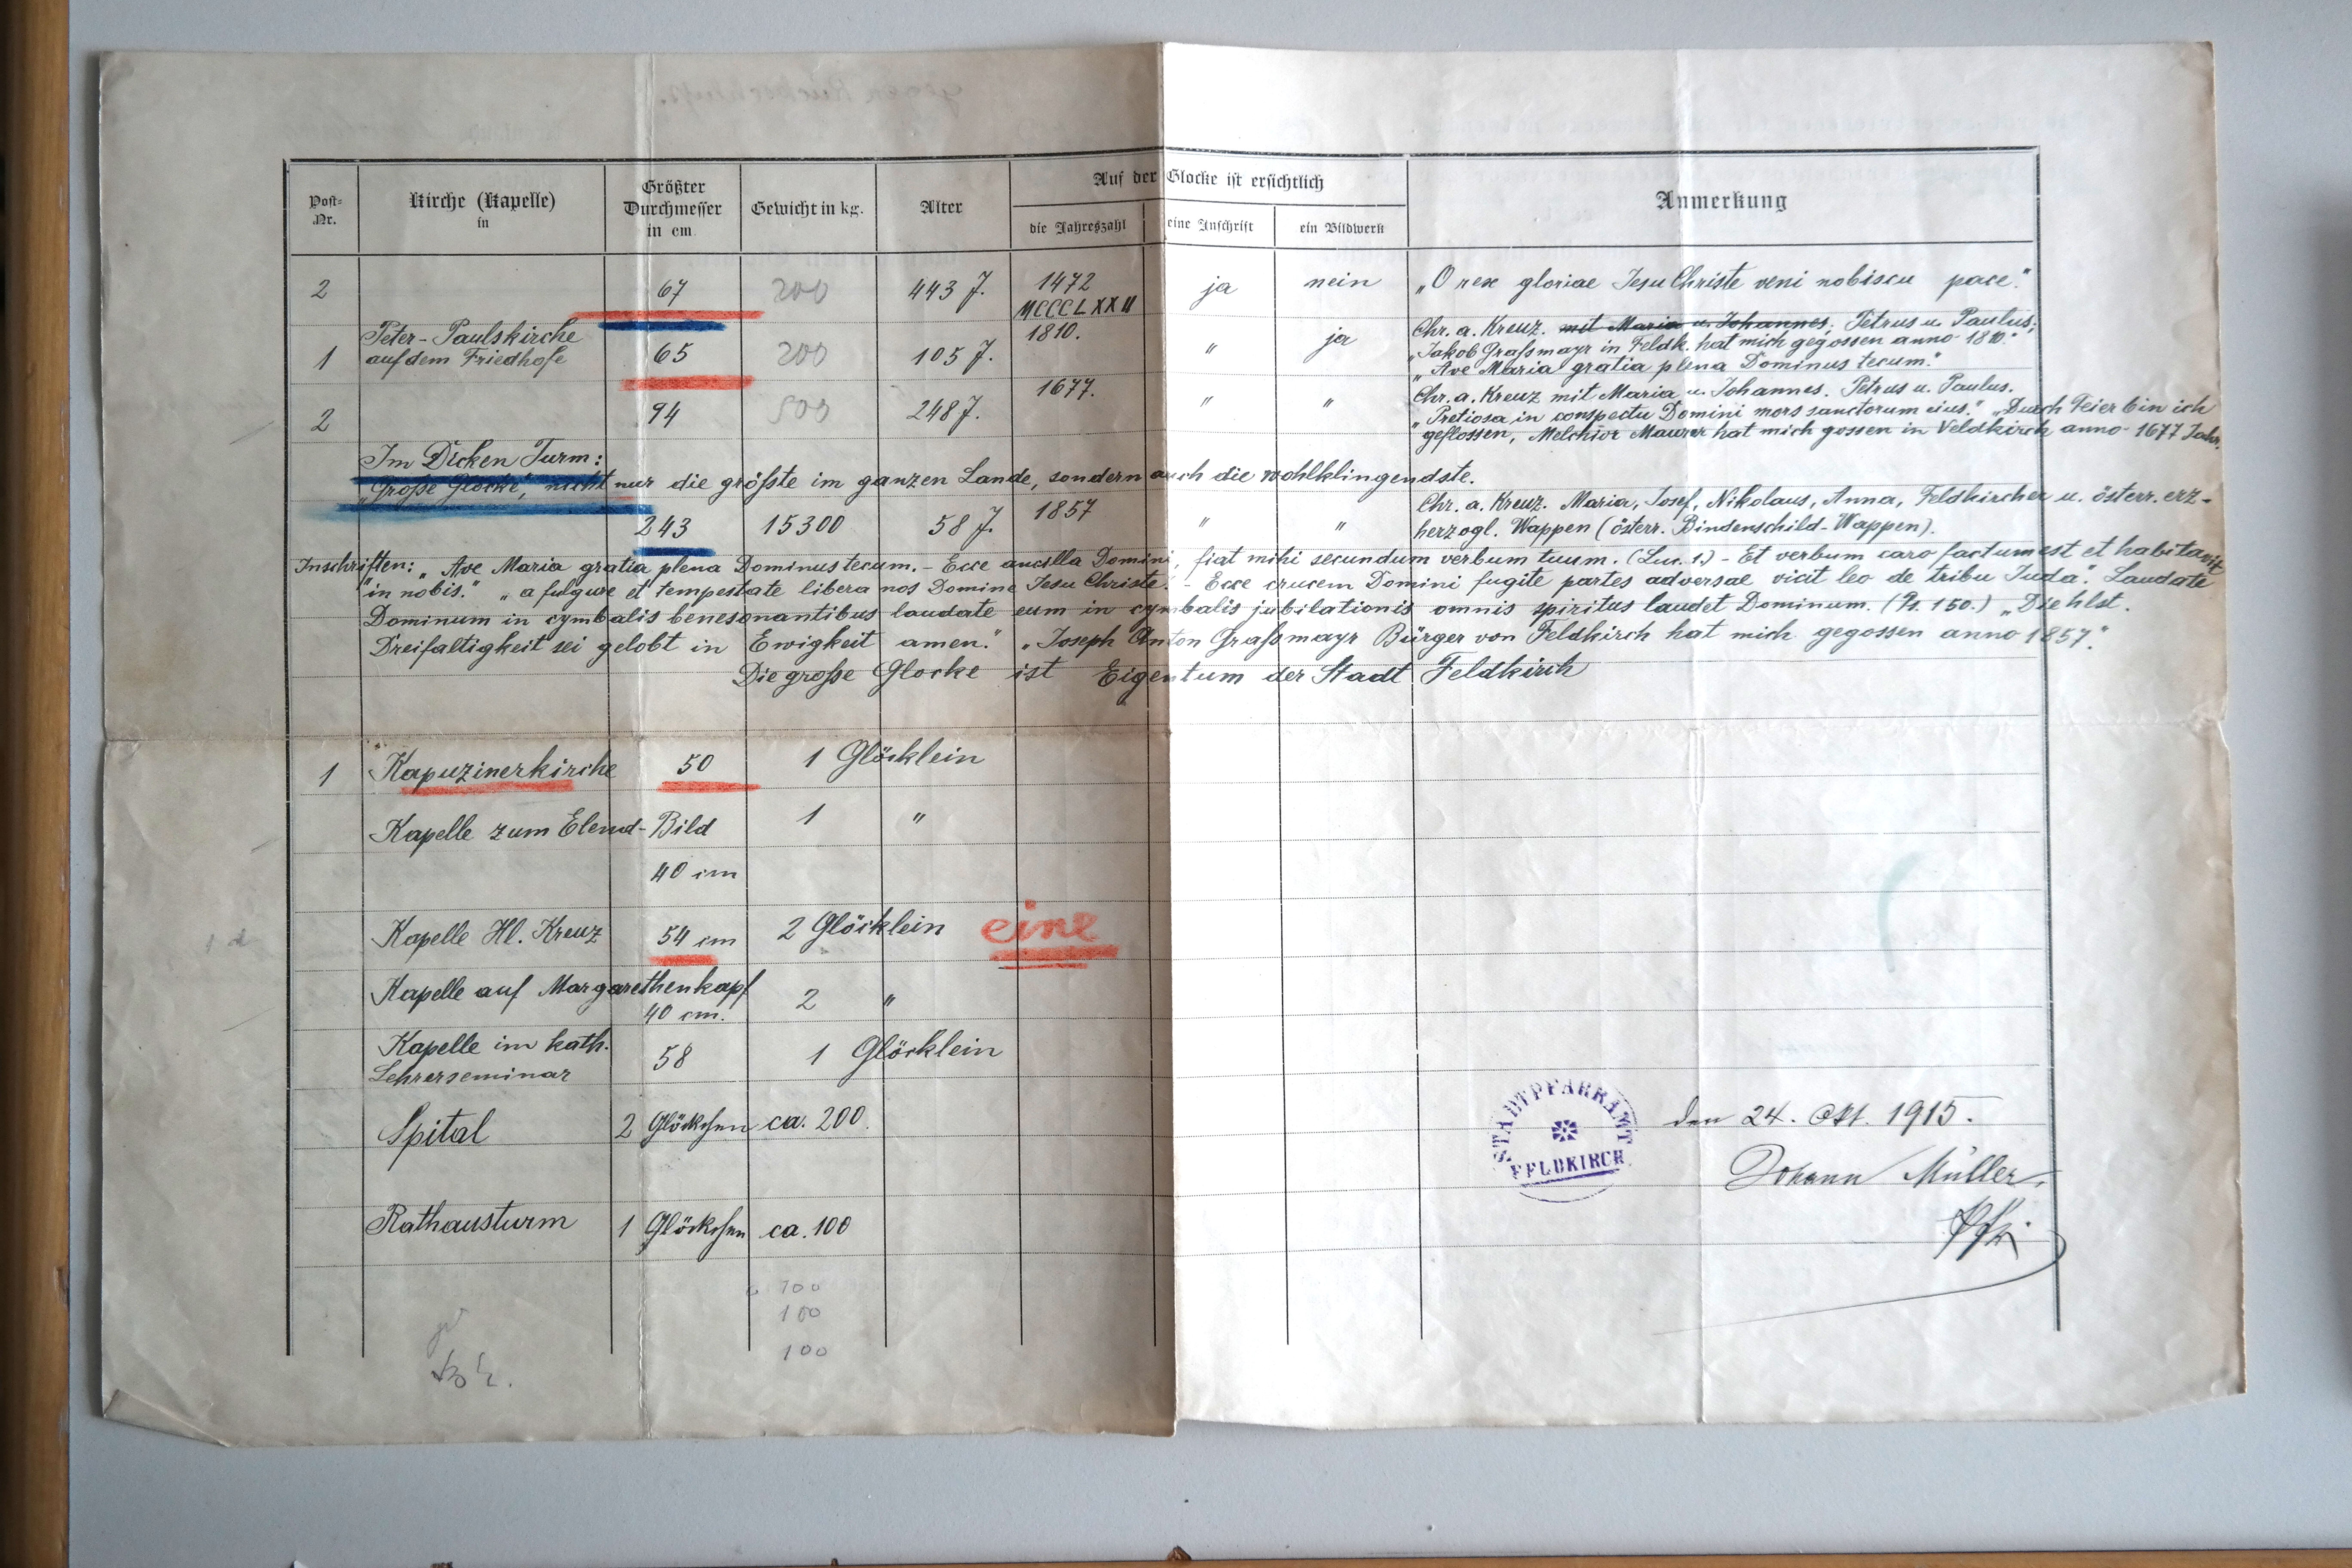 Post-Nr. Kirche (Kapelle) in Größter Durchmesser in cm Gewicht in kg. Alter Auf der Glocke ist ersichtlich Anmerkung
die Jahreszahl eine Inschrift ein Bildwerk
2 67 200 443 J. 1472 ja nein „O rex gloriae Jesu Christe veni nobiscu pace."
MCCCLXXII
Peter-Paulskirche 1810. Chr. a. Kreuz. mit Maria u. Johannes. Petrus u. Paulus;
1 auf dem Friedhofe 65 200 105 J. " ja „Jakob Graßmayr in Feldk. hat mich gegossen anno 1810."
„Ave Maria gratia plena Dominus tecum."
1677. Chr. a. Kreuz mit Maria u. Johannes. Petrus u. Paulus.
2 94 500 248 J. " " „Pretiosa in conspectu Domini mors sanctorum eius." „Durch Feier bin ich
geflossen, Melchior Maurer hat mich gossen in Veldkirch anno 1677 Jahr.
Im Dicken Turm:
„Große Glocke", nicht nur die größte im ganzen Lande, sondern auch die wohlklingendste.
243 15300 58 J. 1857 " " Chr. a. Kreuz. Maria, Josef, Nikolaus, Anna, Feldkircher u. österr. erz-
herzogl. Wappen (österr. Bindenschild-Wappen).
Inschriften: „Ave Maria gratia plena Dominus tecum. - Ecce ancilla Domini, fiat mihi secundum verbum tuum. (Luc. 1.) - Et verbum caro factum est et habitavit
in nobis." „a fulgure et tempestate libera nos Domine Jesu Christe." - Ecce crucem Domini fugite partes adversae vicit leo de tribu Juda". Laudate
Dominum in cymbalis benesonantibus laudate eum in cymbalis jubilationis omnis spiritus laudet Dominum. (Ps. 150.) „Die hlst.
Dreifaltigkeit sei gelobt in Ewigkeit amen." „Joseph Anton Graßmayr Bürger von Feldkirch hat mich gegossen anno 1857."
Die große Glocke ist Eigentum der Stadt Feldkirch
1 Kapuzinerkirche 50 1 Glöcklein
Kapelle zum Elend-Bild 1 "
40 cm
Kapelle Hl. Kreuz 54 cm 2 Glöcklein eine
Kapelle auf Margarethenkapf 2 "
40 cm.
Kapelle im kath. 58 1 Glöcklein
Lehrerseminar
Spital 2 Glöckchen ca. 200.
Rathausturm 1 Glöckchen ca. 100
100
100
100
STADTPFARRAMT FELDKIRCH
den 24. Okt. 1915.
Johann Müller,